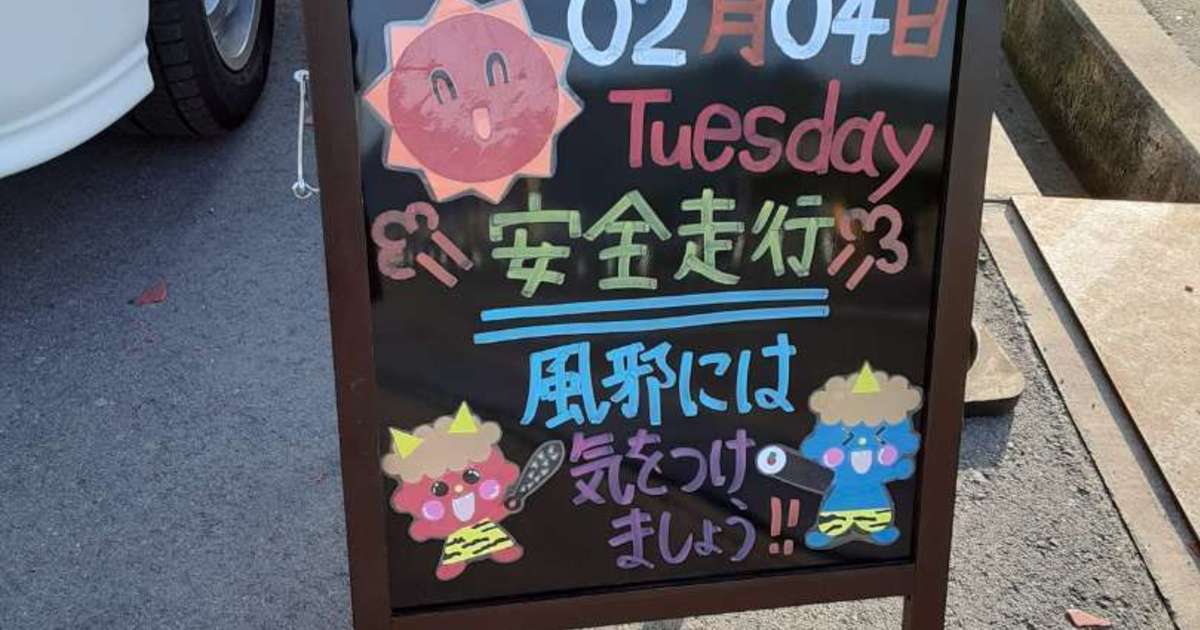 02月04日
Tuesday
安全走行
風邪には
気をつけ
ましょう!!